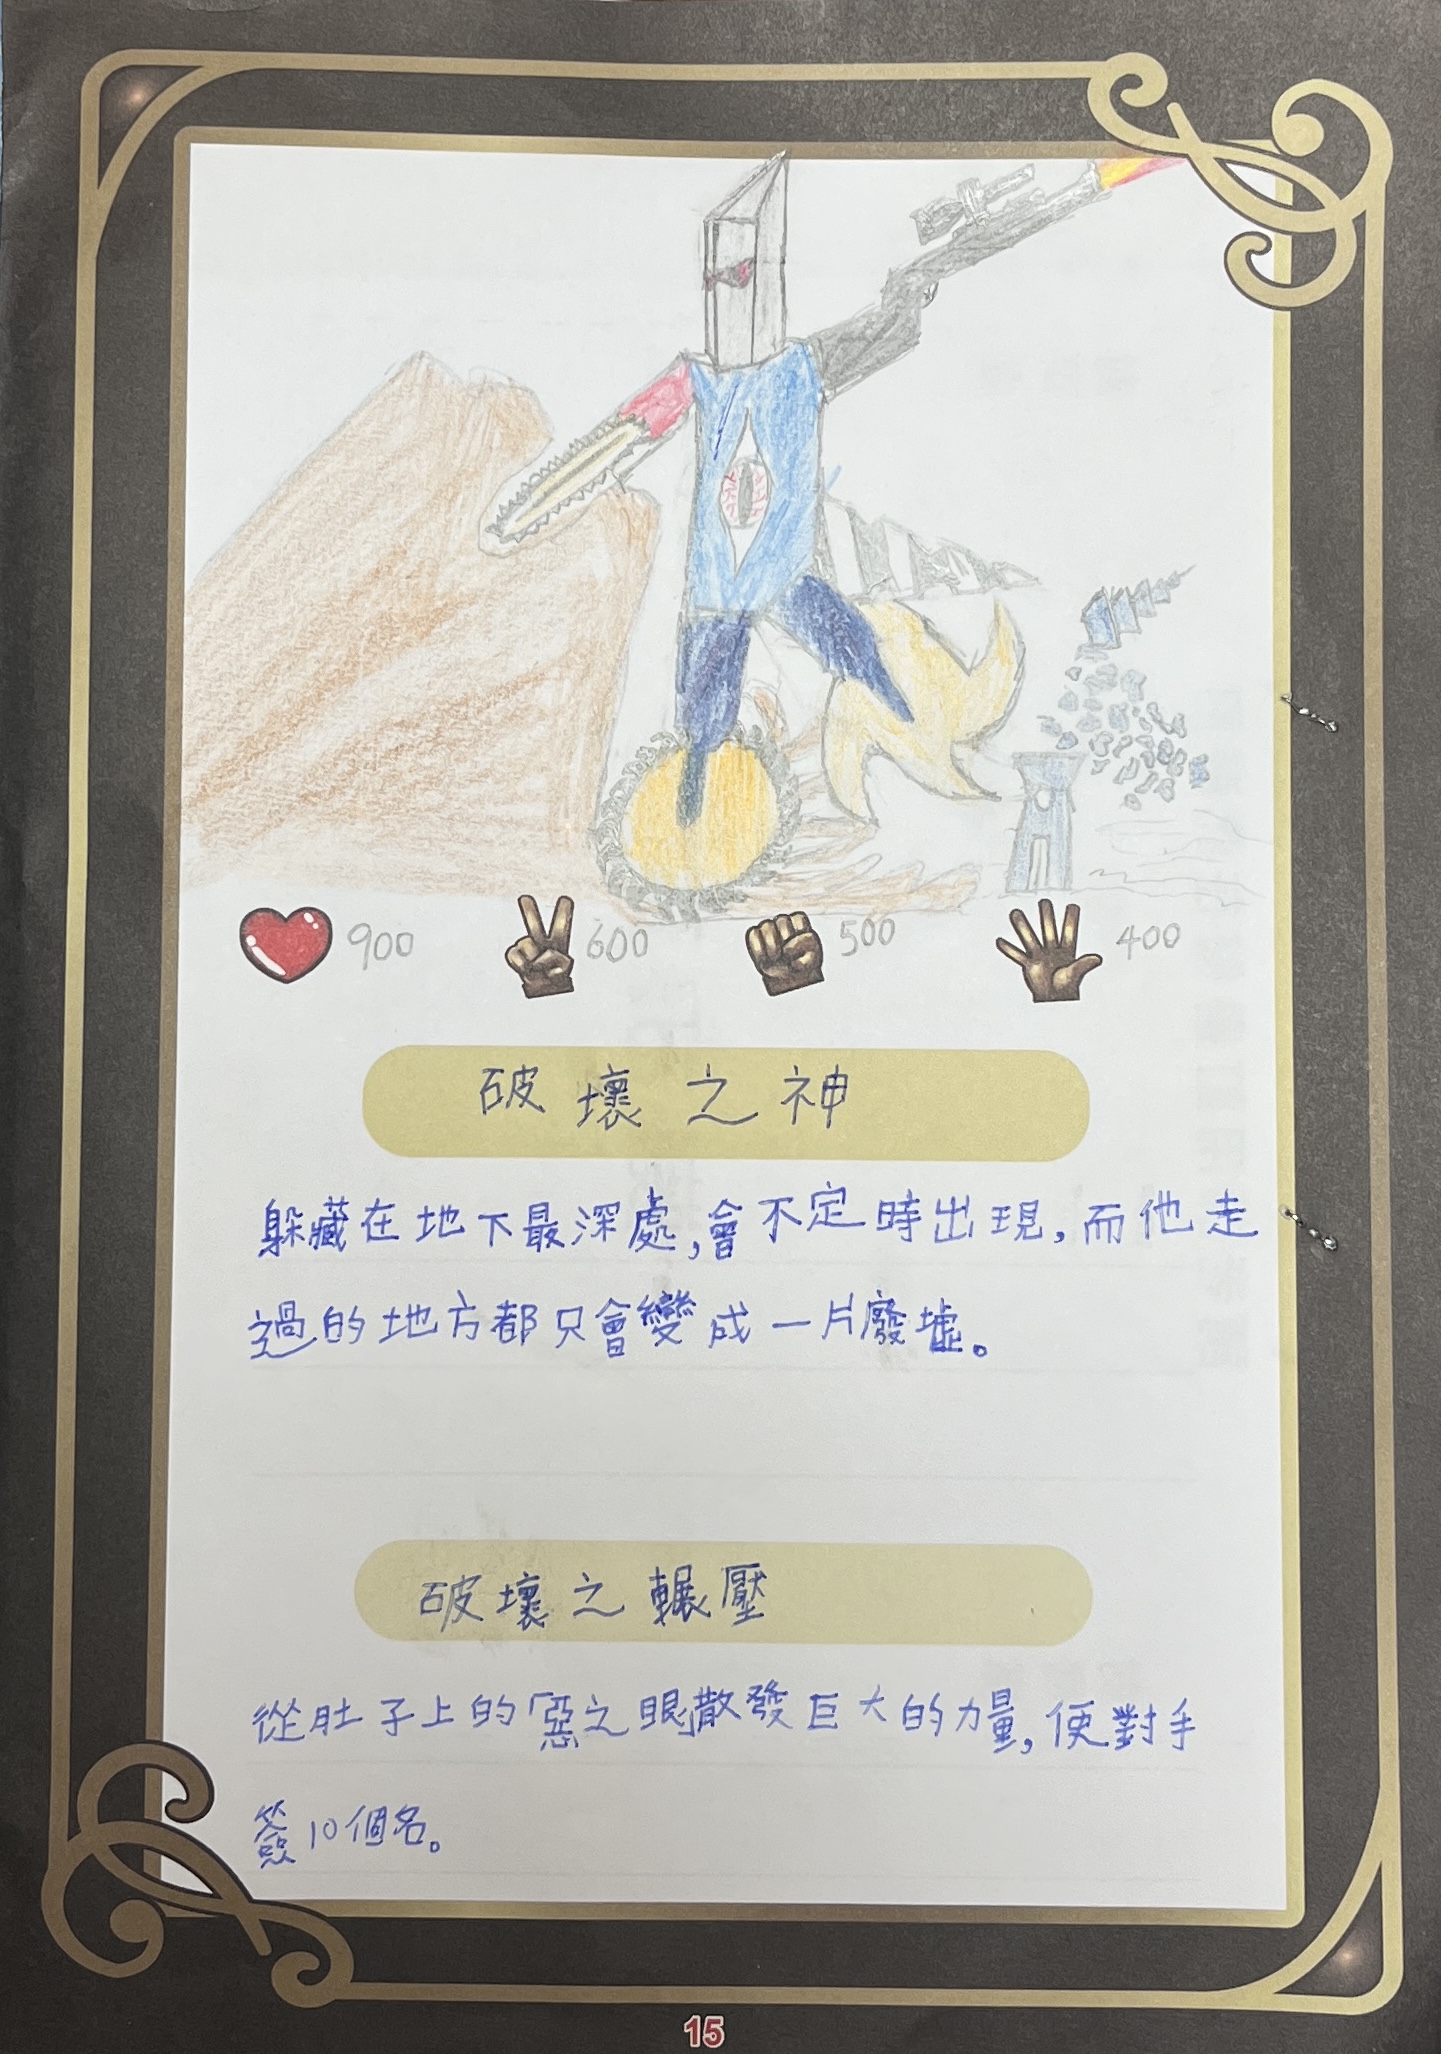 900 600 500 400
破壞之神
躲藏在地下最深處,會不定時出現,而他走
過的地方都只會變成一片廢墟。
破壞之輾壓
從肚子上的「惡之眼」散發巨大的力量,使對手
簽10個名。
15